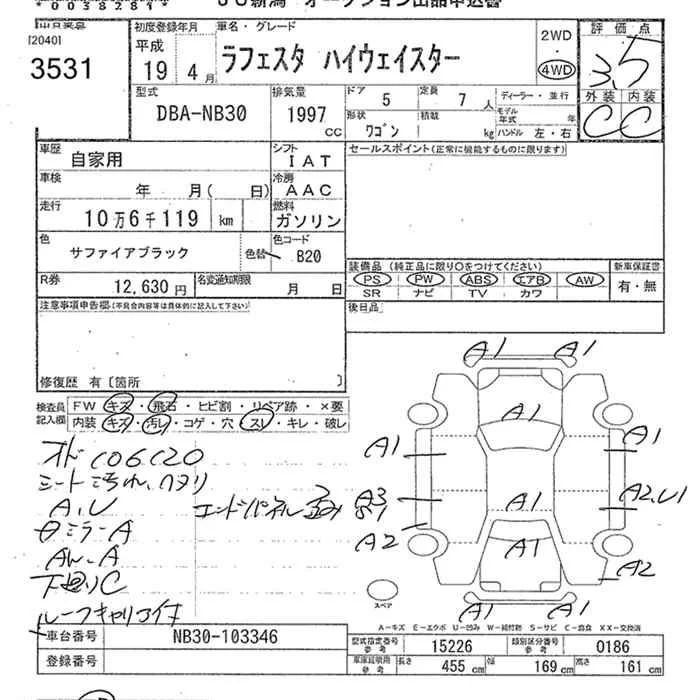 003828814
JU新潟 オークション出品申込書
[2040]
3531
初度登録年月
平成
19年 4月
車名・グレード
ラフェスタ ハイウェイスター
2WD
4WD
評価点
3.5
外装 内装
C C
型式
DBA-NB30
排気量
1997 cc
ドア 5
定員 7人
ディーラー・並行
モデル年式 年
形状 ワゴン
積載 kg
ハンドル 左・右
車歴 自家用
シフト IAT
セールスポイント(正常に機能するものに限ります)
車検 年 月( 日)
冷房 AAC
走行 10万6千119 km
燃料 ガソリン
色 サファイアブラック
色替
色コード B20
装備品 (純正品に限り○をつけてください)
新車保証書
PS PW ABS エアB AW
SR ナビ TV カワ
有・無
R券 12,630円
名変通知期限 月 日
後日品
注意事項申告欄(不具合内容等は具体的に記入して下さい)
修復歴 有〔箇所 〕
検査員記入欄
FW キズ・飛石・ヒビ割・リペア跡・×要
内装 キズ・汚レ・コゲ・穴・スレ・キレ・破レ
シート汚れ、ヘタリ
A、U
エンドパネル凹み
ミラーA
下廻りC
ルーフキャリア付
A1 A1
A1
A1 A1
A3
A1
A2,U1
A2
A1
A2
A1 A1
スペア
A-キズ E-エクボ U-凹み W-補修跡 S-サビ C-腐食 XX-交換済
車台番号 NB30-103346
型式指定番号 参考 15226
類別区分番号 参考 0186
登録番号
車庫証明用 参考
長さ 455 cm 幅 169 cm 高さ 161 cm